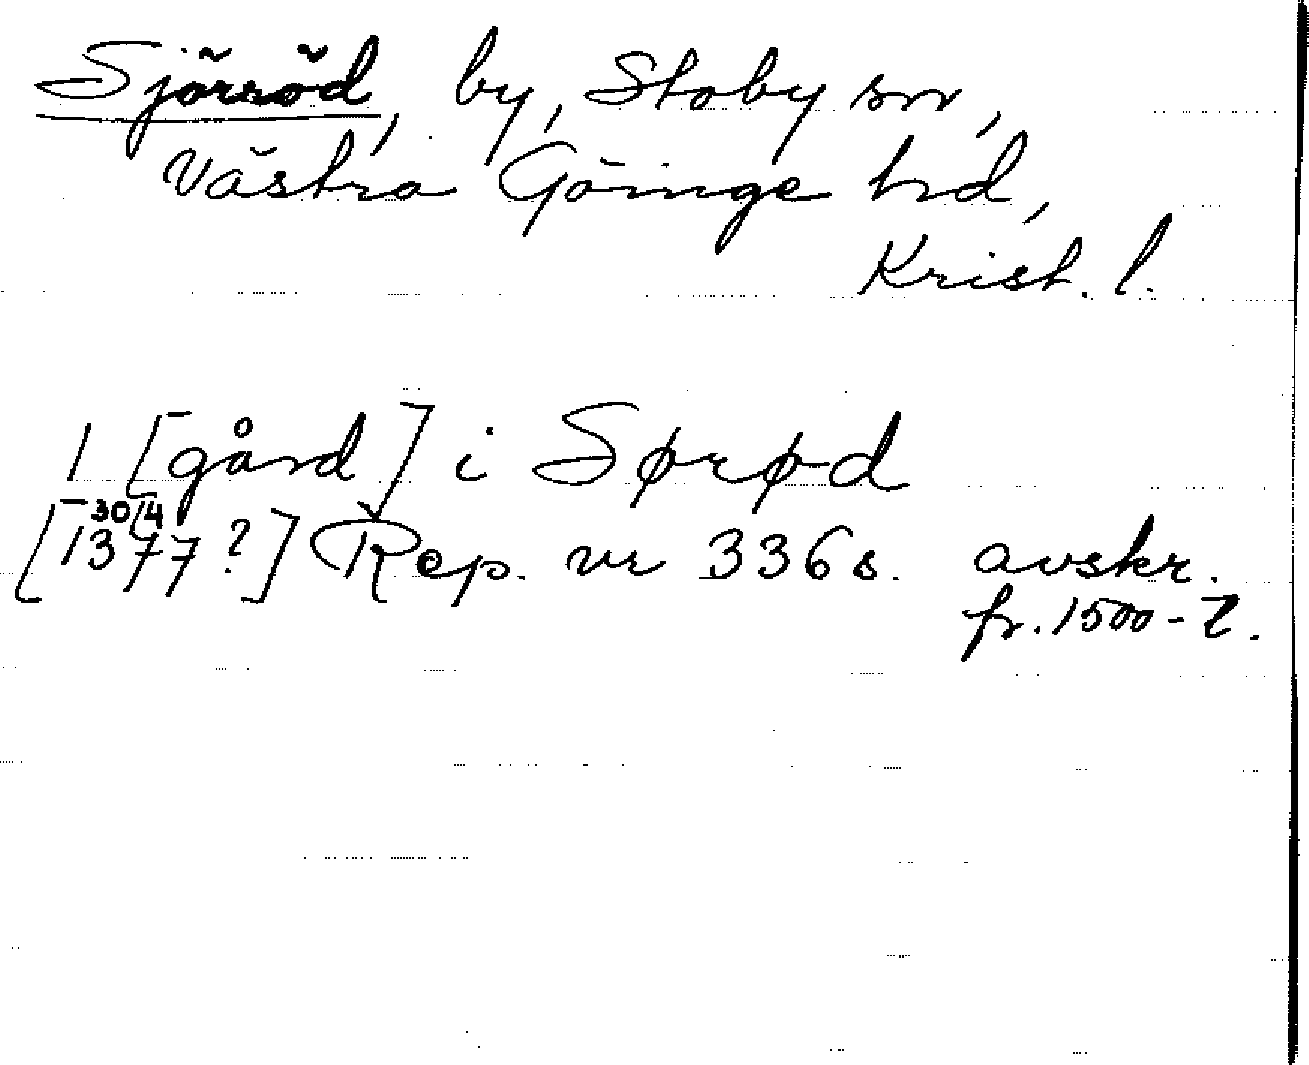 Sjörröd, by, Stoby sn,
Västra Göinge hd,
Krist. l.
1 [gård] i Sørød
[1377 30/4 ?] Rep. nr 3368. avskr.
fr. 1500-t.